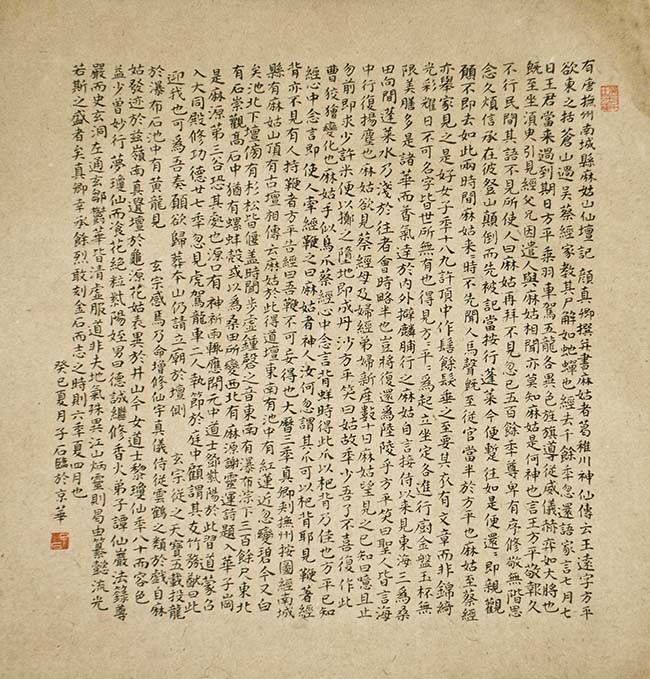 有唐撫州南城縣麻姑山仙壇記 顔真卿撰并書麻姑者葛稚川神仙傳云王遠字方平
欲東之括蒼山過吳蔡經家教其尸解如虵蟬也經去十餘年忽還語家言七月七
日王君當来過到期日方平乗羽車駕五龍各異色旌旗導従威儀赫弈如大將也
旣至坐湏臾引見經父兄因遣人與麻姑相聞亦莫知麻姑是何神也言王方平敬報久
不行民間其語不見所使人曰麻姑再拜不見忽已五百餘年尊卑有序修敬無階思
念久煩信承在彼登山顛倒而先被記當按行蓬莱今便蹔往如是便還還即親觀
願不即去如此兩時間麻姑来来時不先聞人馬聲旣至従官當半於方平也麻姑至蔡經
亦舉家見之是好女子年十八九許頂中作髻餘髮垂之至要其衣有文章而非錦綺
光彩耀日不可名字皆世所無有也得見方平方平為起立坐定各進行廚金盤玉杯無
限美膳多是諸華而香氣達於內外擗麟脯行之麻姑自言接侍以来見東海三為桑
田向間蓬莱水乃淺於往者會時略半也豈將復還為陸陵乎方平笑曰聖人皆言海
中行復揚塵也麻姑欲見蔡經母及婦弟婦新產數十日麻姑望見之已知曰噫且止
勿前即求少許米便以擲之墮地即成丹沙方平笑曰姑故年少吾了不喜復作此
曹狡獪變化也麻姑手似鳥爪蔡經心中念言背蛘時得此爪以杷背乃佳也方平已知
經心中念言即使人牽經鞭之曰麻姑者神人汝何忽謂其爪可以杷背耶見鞭著經
背亦不見有人持鞭者方平告經曰吾鞭不可妄得也大曆三年真卿刺撫州按圖經南城
縣有麻姑山頂有古壇相傳云麻姑於此得道壇東南有池中有紅蓮近忽變碧今又白
矣池北下壇傍有杉松皆偃蓋時聞步虛鍾磬之音東南有瀑布淙下三百餘尺東北
有石崇觀高石中猶有螺蚌殼或以為桑田所變西北有麻源謝靈運詩題入華子崗
是麻源第三谷恐其處也源口有神祈雨輒應開元中道士鄧紫陽於此習道蒙召
入大同殿修功德廿七年忽見虎駕龍車二人執節於庭中顧謂其友竹務猷曰此
迎我也可為吾奏願欲歸葬本山仍請立廟於壇側 玄宗従之天寶五載投龍
於瀑布石池中有黃龍見 玄宗感焉乃命增修仙宇真儀侍従雲鶴之類於戲自麻
姑發迹於兹嶺南真遺壇於龜源花姑表異於井山今女道士黎瓊仙年八十而容色
益少曾妙行夢瓊仙而飡花絶粒紫陽姪男曰德誠繼修香火弟子譚仙巖法籙尊
嚴而史玄洞左通玄鄒鬱華皆清虛服道非夫地氣殊異江山炳靈則曷由纂懿流光
若斯之盛者矣真卿幸承餘烈敢刻金石而志之時則六年夏四月也
癸巳夏月子石臨於京華